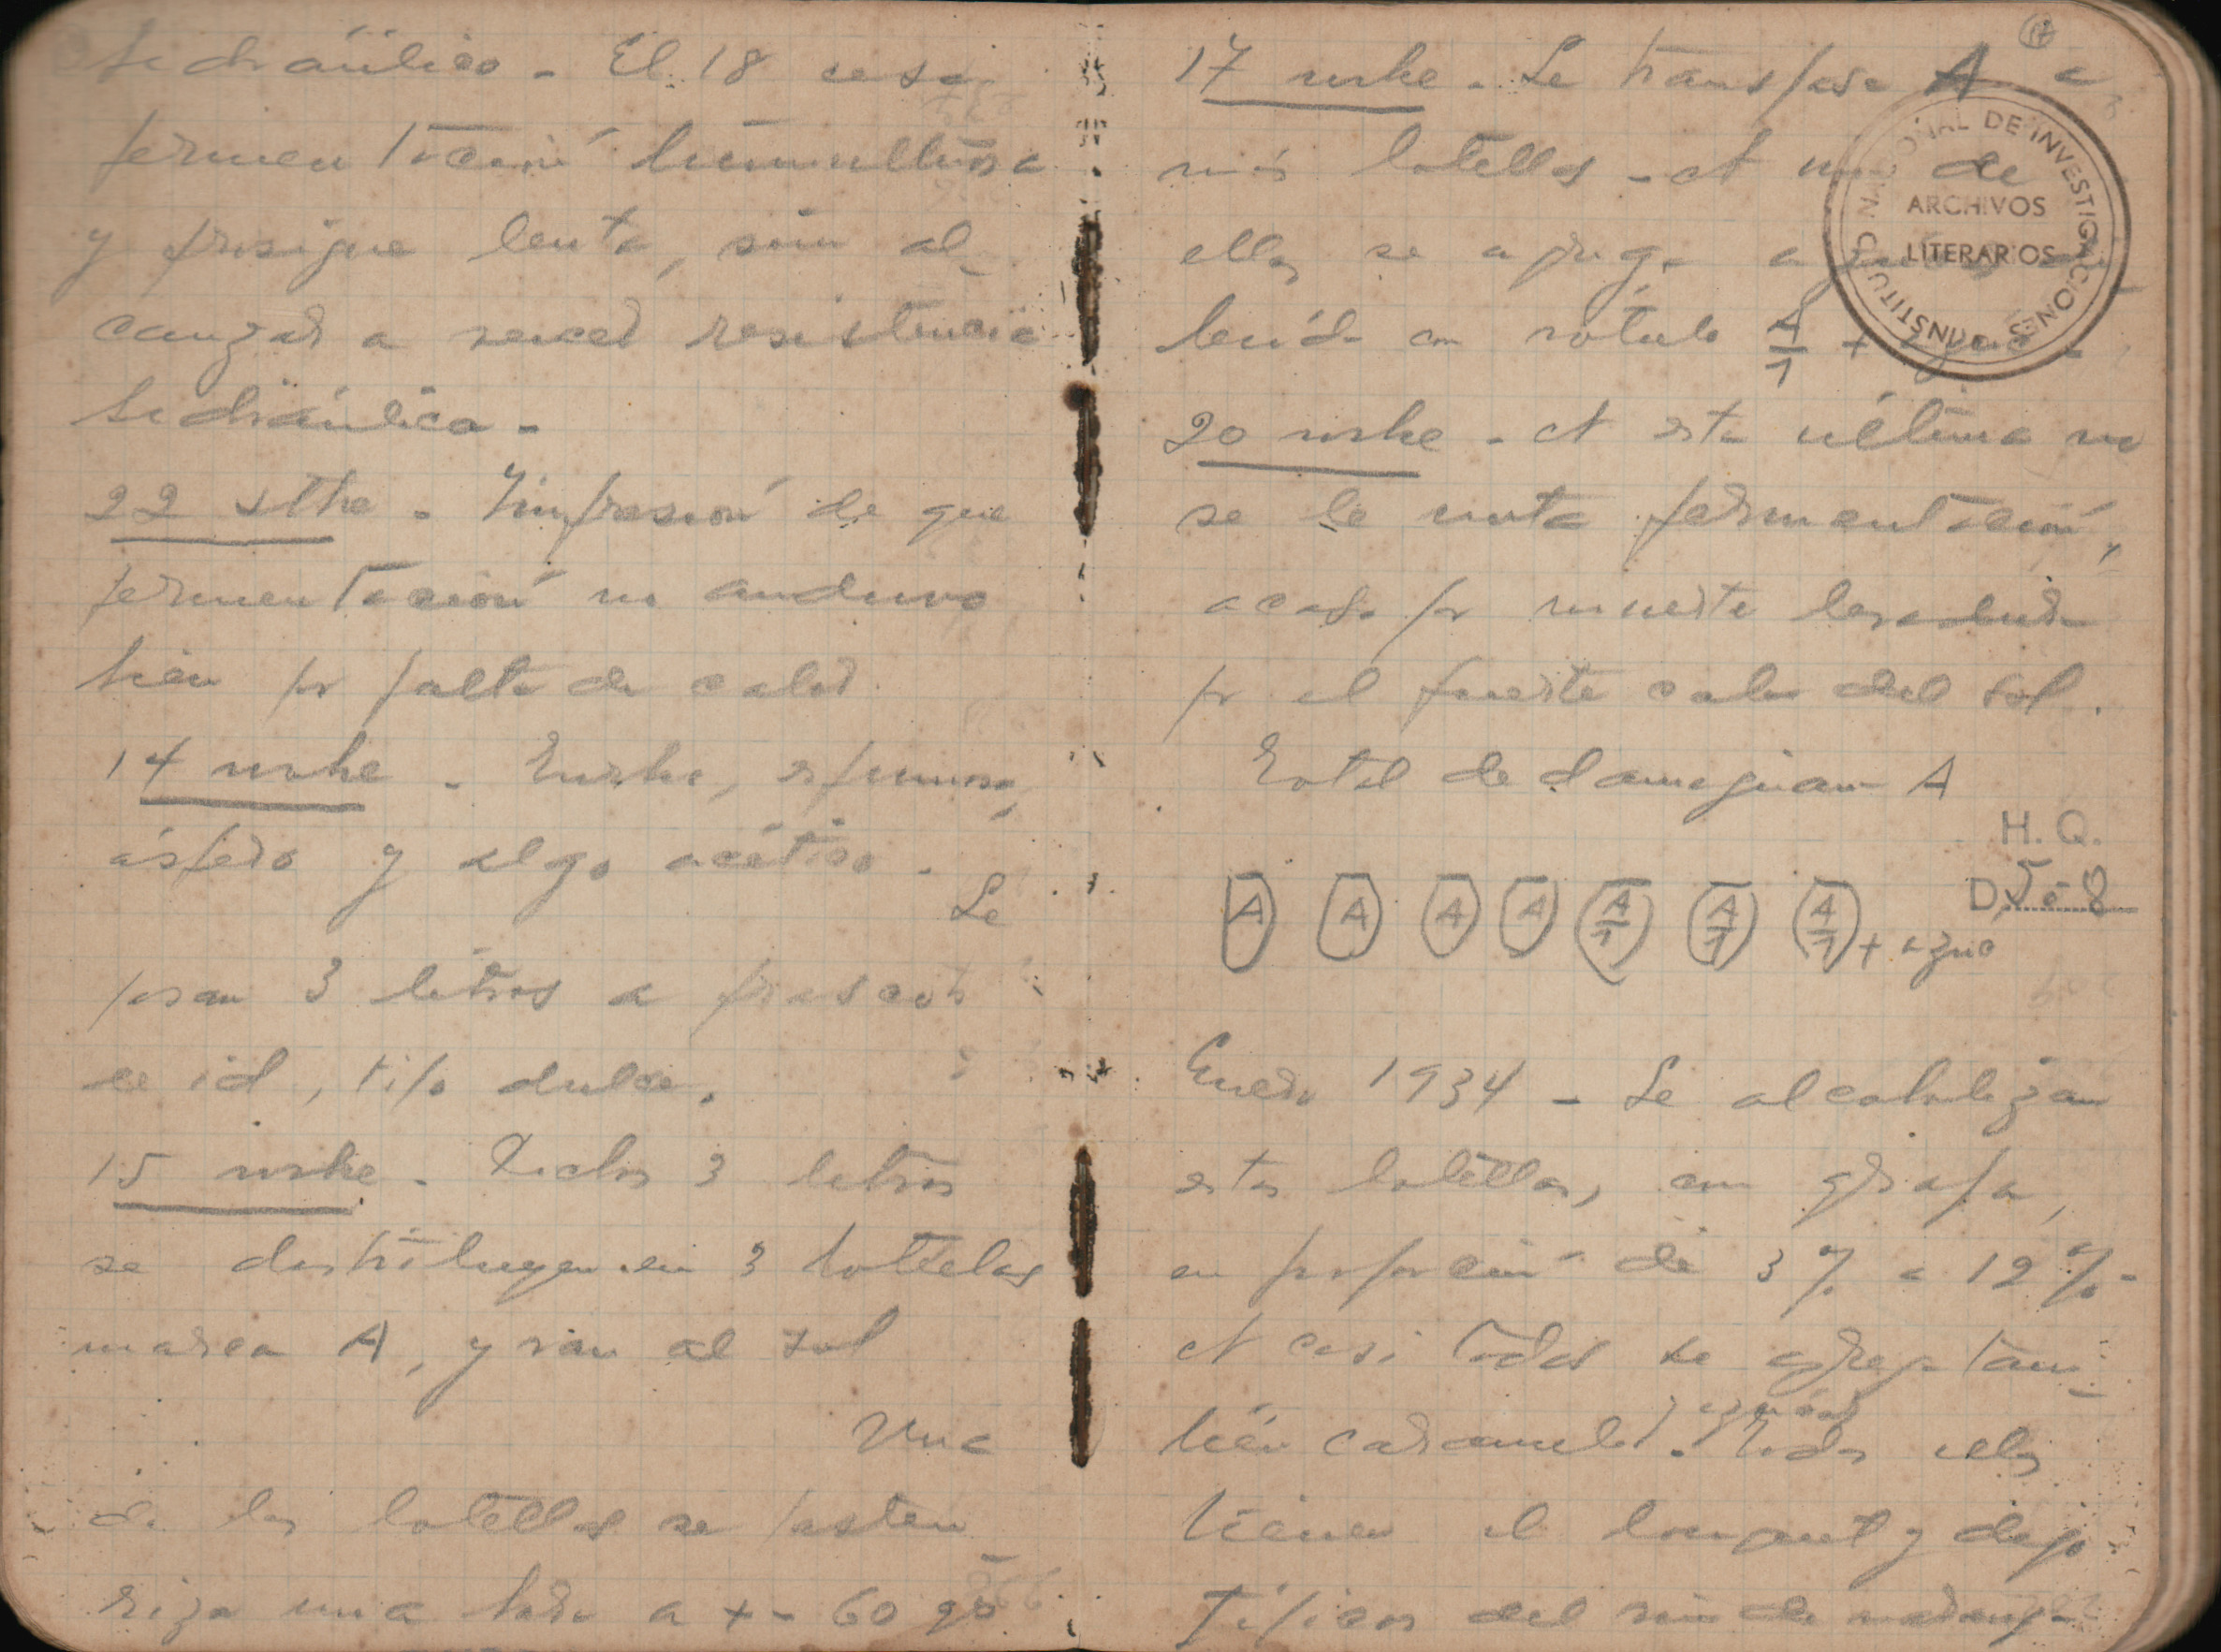 hidráulico - El 18 cesa
fermentación tumultuosa
y prosigue lenta, sin al-
canzar a vencer resistencia
hidráulica -
22 stbre - Impresión de que
fermentación no anduvo
bien por falta de calor
14 novbre - Turbio, espumoso,
áspero y algo acético -
Se
pasan 3 litros a frascos
de id, tipo dulce.
15 novbre - Dichos 3 litros
se distribuyen en 3 botellas
marca A, y van al sol
Una
de las botellas se pasteu
riza una hora a +- 60 gº
17
17 novbre - Se transpasa A a
más botellas - A una de
ellas se agrega
con rótulo A/1 + agua -
20 novbre - A esta última no
se le nota fermentación,
acaso por muerte levadura
por el fuerte calor del sol.
Total de damajuana A
H. Q.
D, 5º 8
A A A A A/1 A/1 A/1 + agua
Enero 1934 - Se alcoholizan
estas botellas, con grapa,
en proporción de 3 % a 12 % -
A casi todas se agrega tam-
bién caramelo. Todas ellas
tienen el bouquet y dejo
típicos del vino de naranja
INSTITUTO NACIONAL DE INVESTIGACIONES
ARCHIVOS
LITERARIOS